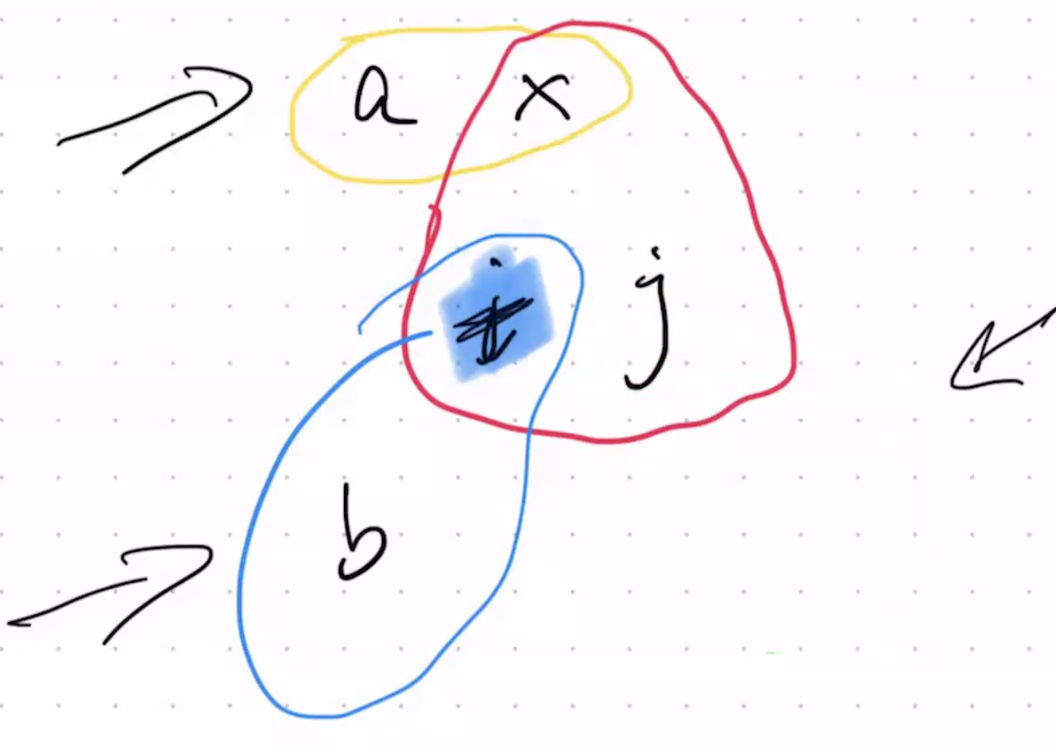 a x
j
b